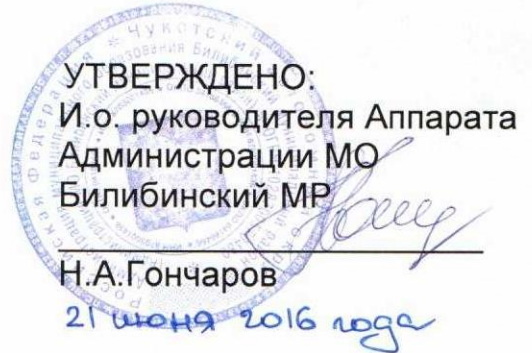 УТВЕРЖДЕНО:
И.о. руководителя Аппарата
Администрации МО
Билибинский МР
Н.А.Гончаров
21 июня 2016 года